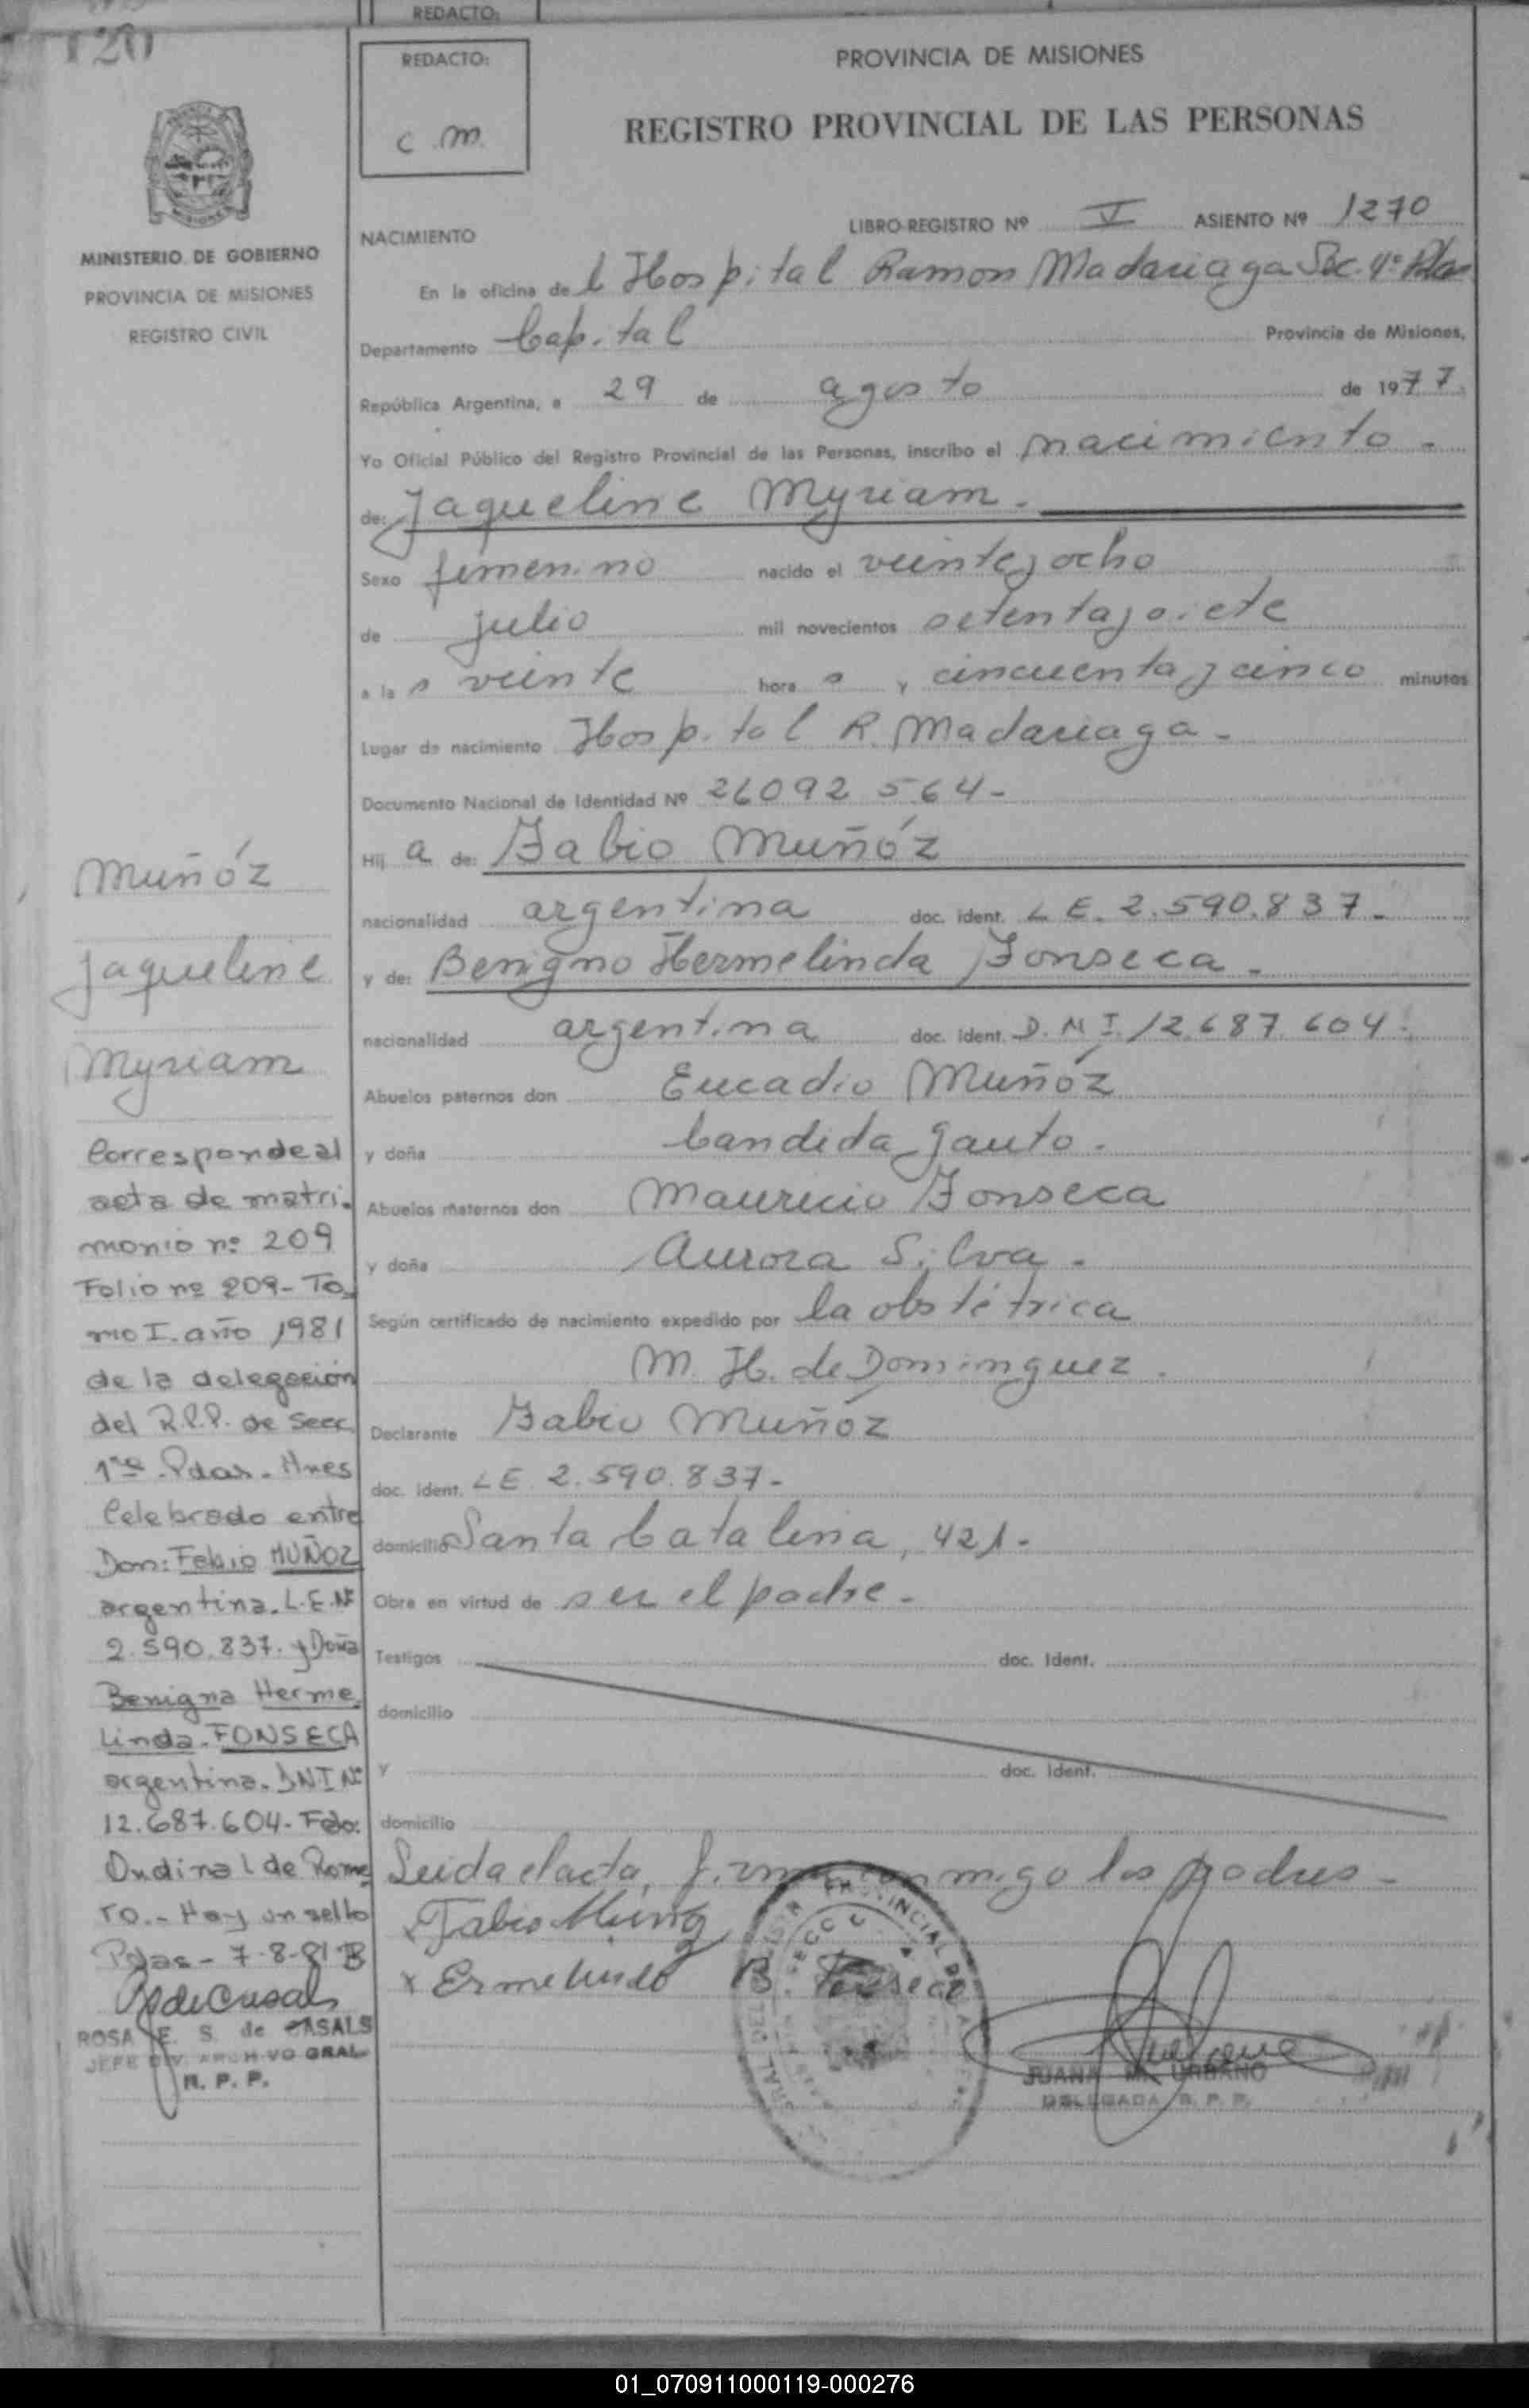 REDACTO:
120
REDACTO:
C.M.
PROVINCIA DE MISIONES
REGISTRO PROVINCIAL DE LAS PERSONAS
MINISTERIO DE GOBIERNO
PROVINCIA DE MISIONES
REGISTRO CIVIL
NACIMIENTO
LIBRO-REGISTRO Nº V ASIENTO Nº 1270
En la oficina del Hospital Ramon Madariaga Sec. 4º Pdas
Departamento Capital Provincia de Misiones,
República Argentina, a 29 de agosto de 1977.
Yo Oficial Público del Registro Provincial de las Personas, inscribo el nacimiento.
de: Jaqueline Myriam.
Sexo femenino nacido el veinte y ocho
de julio mil novecientos setenta y siete
a las veinte horas y cincuenta y cinco minutos
Lugar de nacimiento Hospital R. Madariaga.
Documento Nacional de Identidad Nº 26092564-
Hija de: Fabio Muñóz
nacionalidad argentina doc. ident. L E. 2.590.837.
y de: Benigno Hermelinda Fonseca.
nacionalidad argentina doc. ident. D.N I. 12.687.604.
Abuelos paternos don Eucadio Muñóz
y doña Candida Gauto.
Abuelos maternos don Mauricio Fonseca
y doña Aurora Silva.
Según certificado de nacimiento expedido por la obstétrica
M. H. de Dominguez.
Declarante Fabio Muñóz
doc. ident. LE. 2.590.837-
domicilio Santa Catalina, 421.
Obra en virtud de ser el padre.
Testigos doc. Ident.
domicilio
y doc. Ident.
domicilio
Leida el acta, firman conmigo los padres-
Fabio Muñoz
x Ermelinda B. Fonseca
JUANA M. URBANO
DELEGADA R. P. P.
Muñóz
Jaqueline
Myriam
Corresponde al
acta de matri.
monio nº 209
Folio nº 209- To
mo I. año 1981
de la delegación
del R.P.P. de Secc.
1ra. Pdas. Mnes
Celebrado entre
Don: Fabio MUÑOZ
argentina. L.E.Nº
2.590.837. y Doña
Benigna Herme
linda. FONSECA
argentina. DNI Nº
12.687.604- Fdo:
Ondina L de Rome
ro.- Hay un sello
Pdas- 7-8-81-B
ROSA E. S. de CASALS
JEFE DIV. ARCHIVO GRAL
R. P. P.
01_070911000119-000276